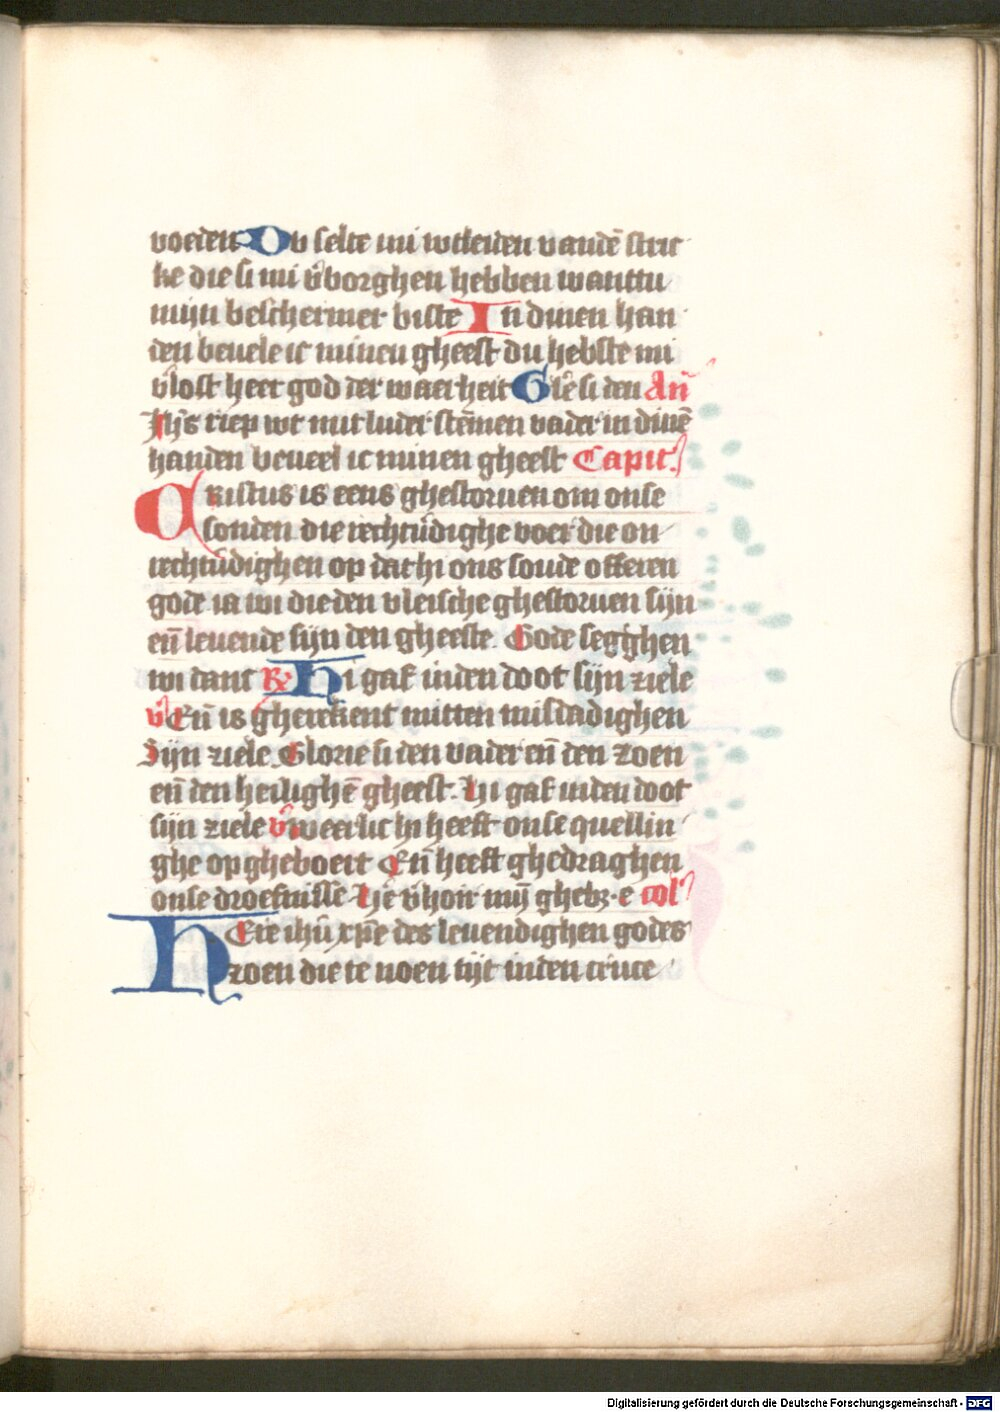 voeden Du selte mi wtleiden vandē stric
ke die si mi v̓borghen hebben wanttu
mijn beschermer biste In dinen han
den beuele ic minen gheest du hebste mi
v̓lost heer god der waerheit Gl̓e si den An̄
Jhs̄ riep wt mit luder stēmen vader in dinē
handen beueel ic minen gheest Capit̓.
Cristus is eens ghestoruen om onse
sonden die rechtūdighe voer die on
rechtūdighen op dat hi ons soude offeren
gode ia wi die den vleische ghestoruen sijn
en̄ leuende sijn den gheeste. Gode segghen
wi danc ℟ Hi gaf inden doot sijn ziele
v̓ En̄ is gherekent mitten misdadighen
Sijn ziele. Glorie si den vader en̄ den zoen
en̄ den heilighē gheest. Hi gaf inden doot
sijn ziele v̓ weerlic hi heeft onse quellin
ghe op gheboert En̄ heeft ghedraghen
onse droefnisse He v̓hoir mij ghebꝫ. e col̓
HEre ihū xp̄e des leuendighen godes
zoen die te noen tijt inden cruce
Digitalisierung gefördert durch die Deutsche Forschungsgemeinschaft - DFG